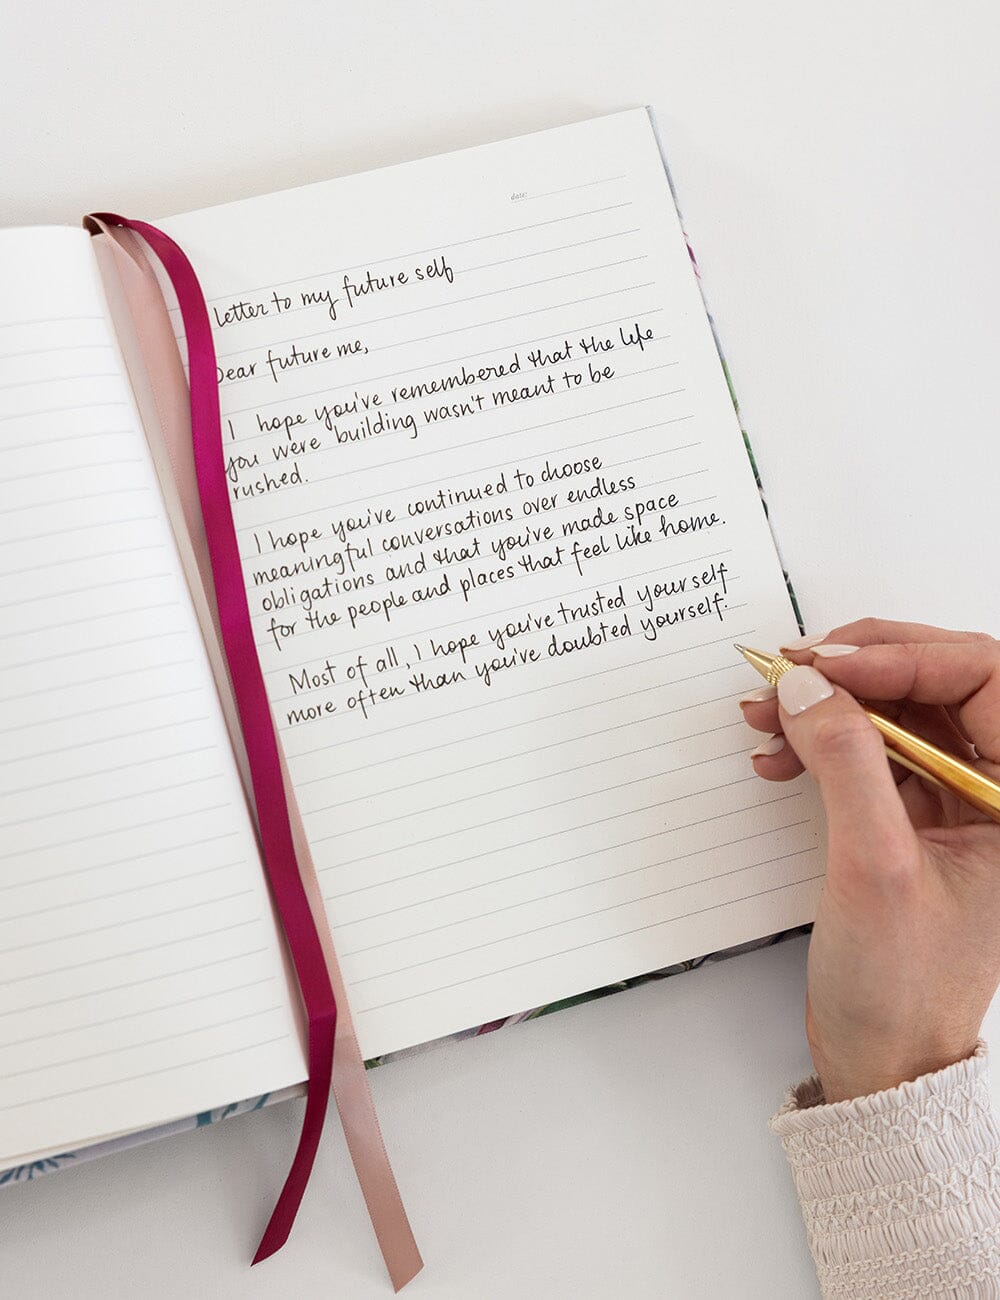 date:
letter to my future self
Dear future me,
I hope you've remembered that the life
you were building wasn't meant to be
rushed.
I hope you've continued to choose
meaningful conversations over endless
obligations and that you've made space
for the people and places that feel like home.
Most of all, I hope you've trusted yourself
more often than you've doubted yourself.